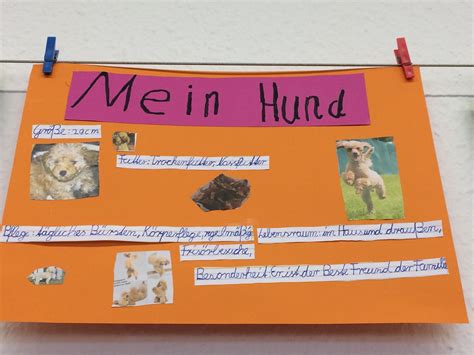 Mein Hund
Größe: 29cm
Futter: Trockenfutter, Nassfutter
Pflege: tägliches Bürsten, Körperpflege, regelmäßig
Frisörbesuche,
Lebensraum: im Haus und draußen,
Besonderheit: Er ist der Beste Freund der Familie